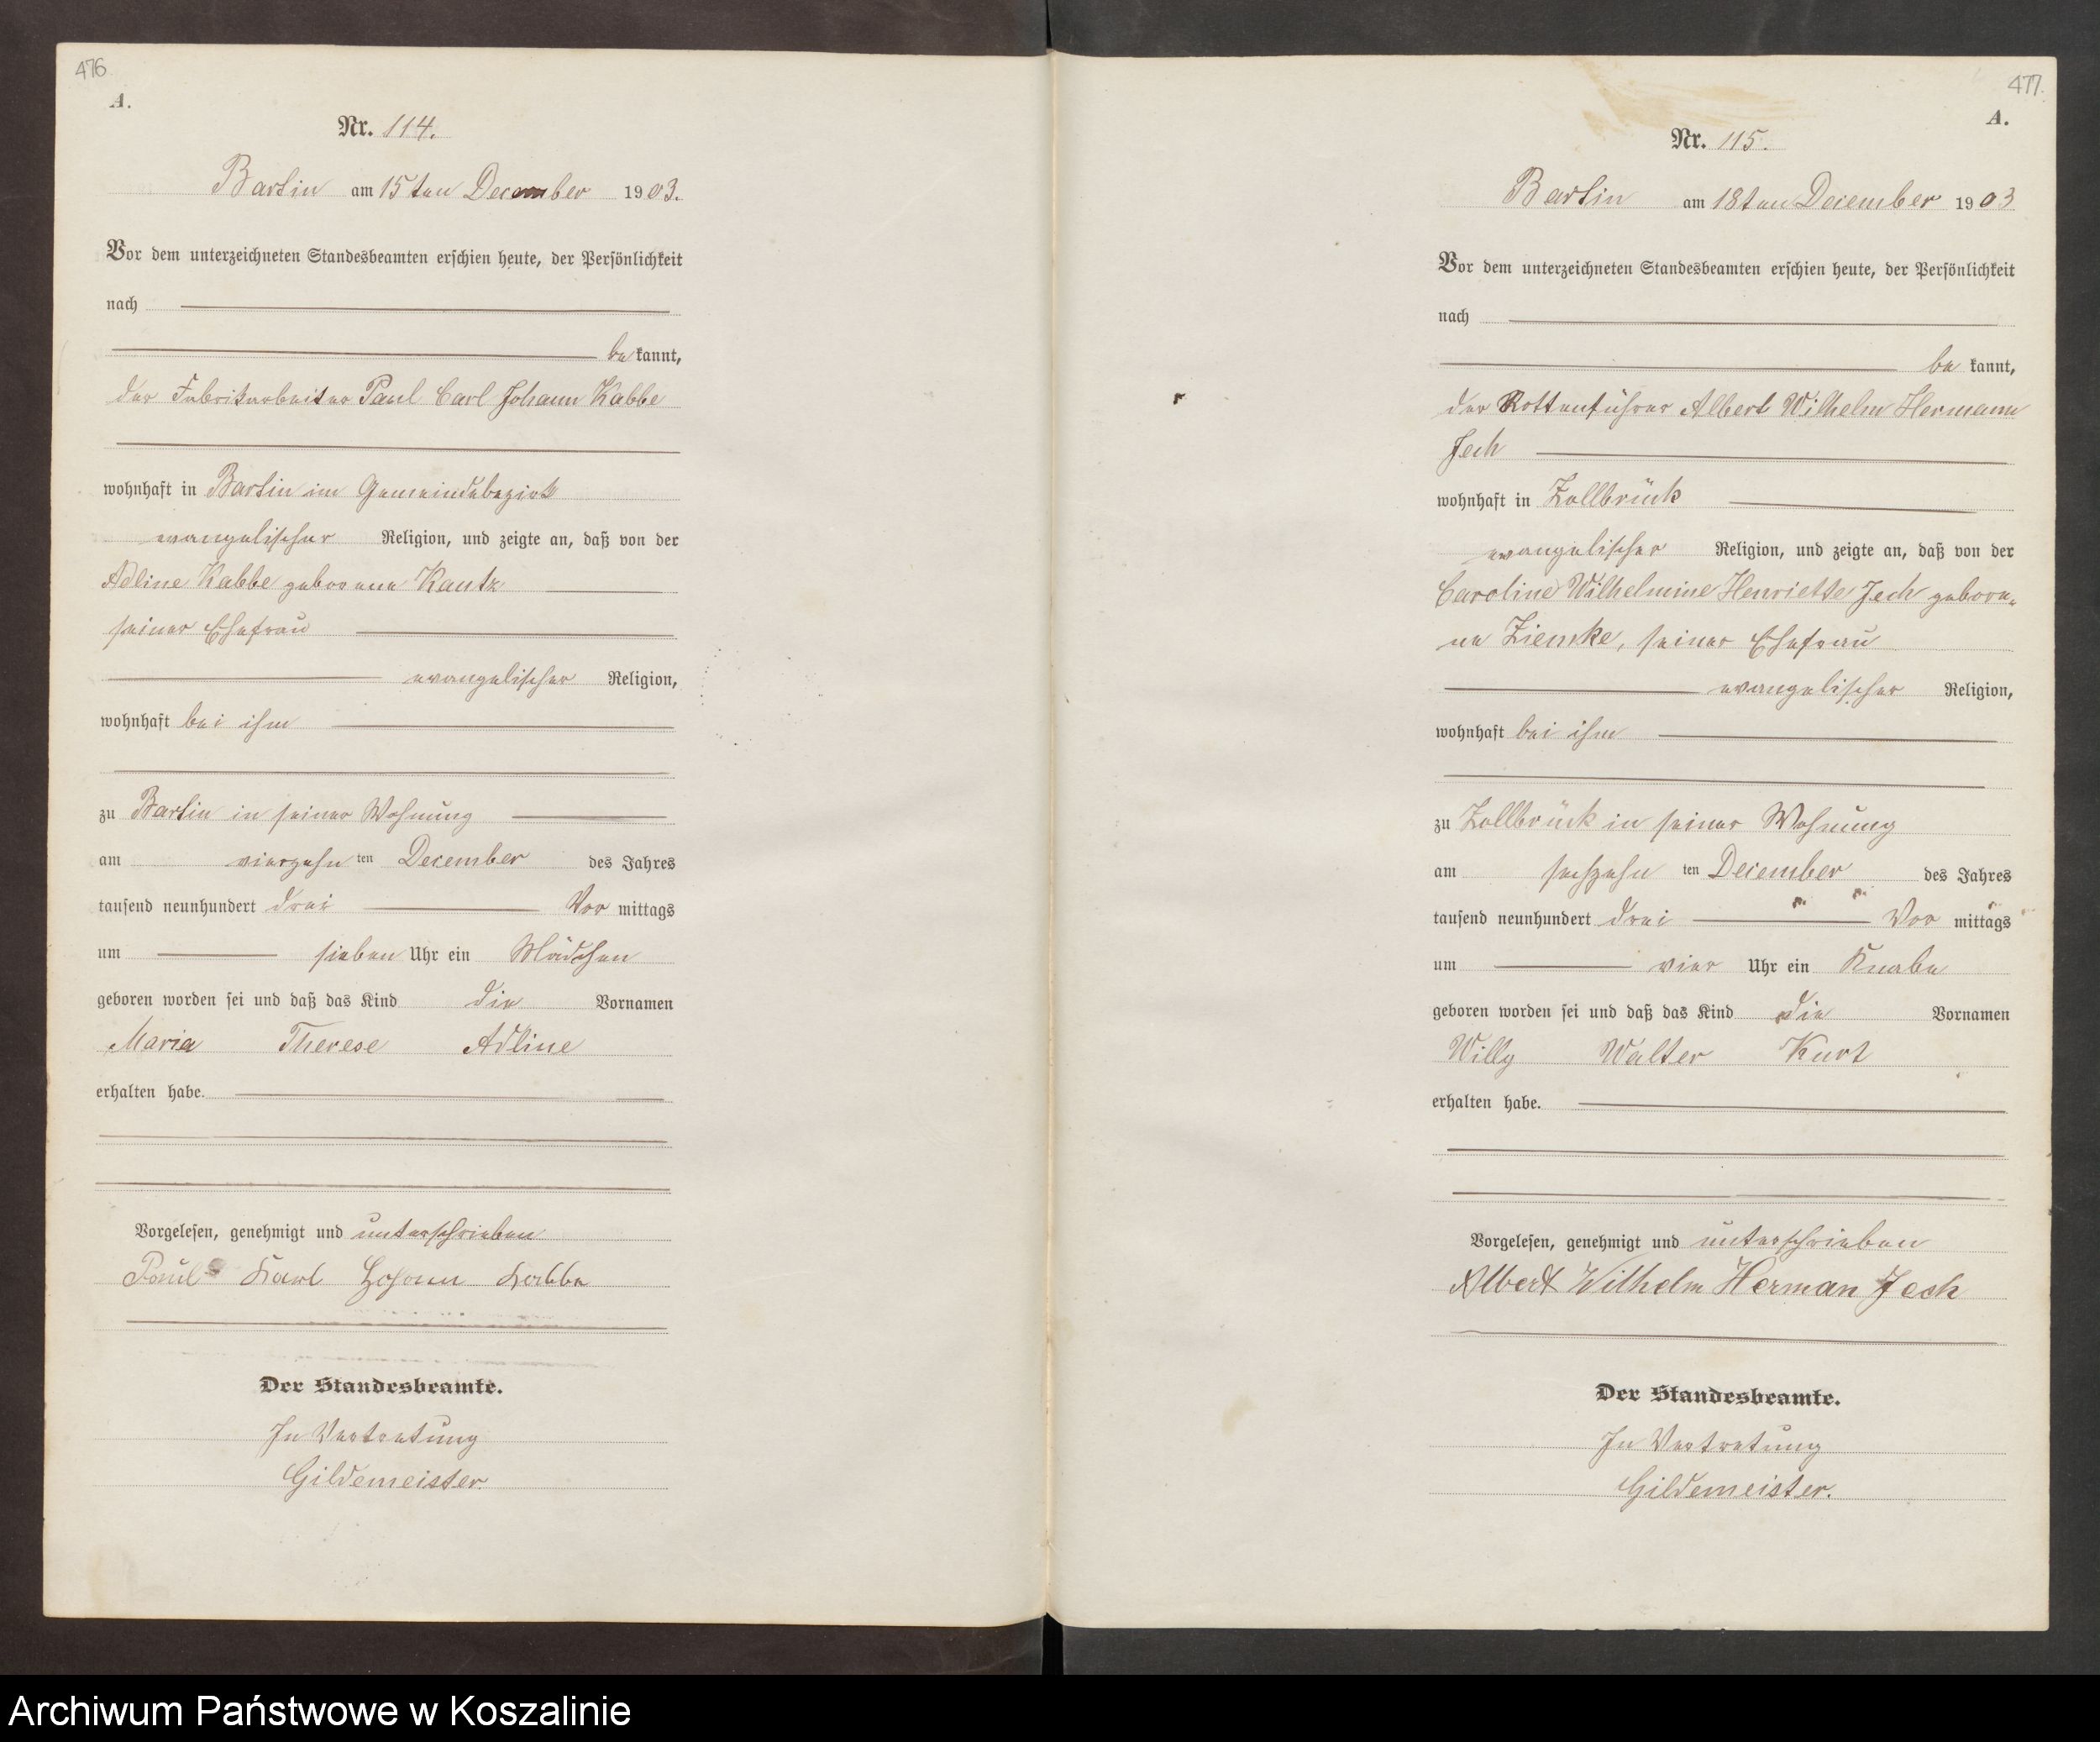 476
A.
Nr. 114.
Bartin am 15ten December 1903.
Vor dem unterzeichneten Standesbeamten erschien heute, der Persönlichkeit
nach
be kannt,
der Fabrikarbeiter Paul Carl Johann Kabbe
wohnhaft in Bartin im Gemeindebezirk
evangelischer Religion, und zeigte an, daß von der
Adline Kabbe geborene Kautz
seiner Ehefrau
evangelischer Religion,
wohnhaft bei ihm
zu Bartin in seiner Wohnung
am vierzehn ten December des Jahres
tausend neunhundert drei Vor mittags
um sieben Uhr ein Mädchen
geboren worden sei und daß das Kind die Vornamen
Maria Therese Adline
erhalten habe.
Vorgelesen, genehmigt und unterschrieben
Paul Karl Johann Kabbe
Der Standesbeamte.
In Vertretung
Gildemeister.
477.
A.
Nr. 115.
Bartin am 18ten December 1903
Vor dem unterzeichneten Standesbeamten erschien heute, der Persönlichkeit
nach
be kannt,
der Rottenführer Albert Wilhelm Hermann
Jech
wohnhaft in Zollbrück
evangelischer Religion, und zeigte an, daß von der
Caroline Wilhelmine Henriette Jech gebore-
ne Ziemke, seiner Ehefrau
evangelischer Religion,
wohnhaft bei ihm
zu Zollbrück in seiner Wohnung
am sechzehn ten December des Jahres
tausend neunhundert drei Vor mittags
um vier Uhr ein Knabe
geboren worden sei und daß das Kind die Vornamen
Willy Walter Kurt
erhalten habe.
Vorgelesen, genehmigt und unterschrieben
Albert Wilhelm Herman Jech
Der Standesbeamte.
In Vertretung
Gildemeister.
Archiwum Państwowe w Koszalinie